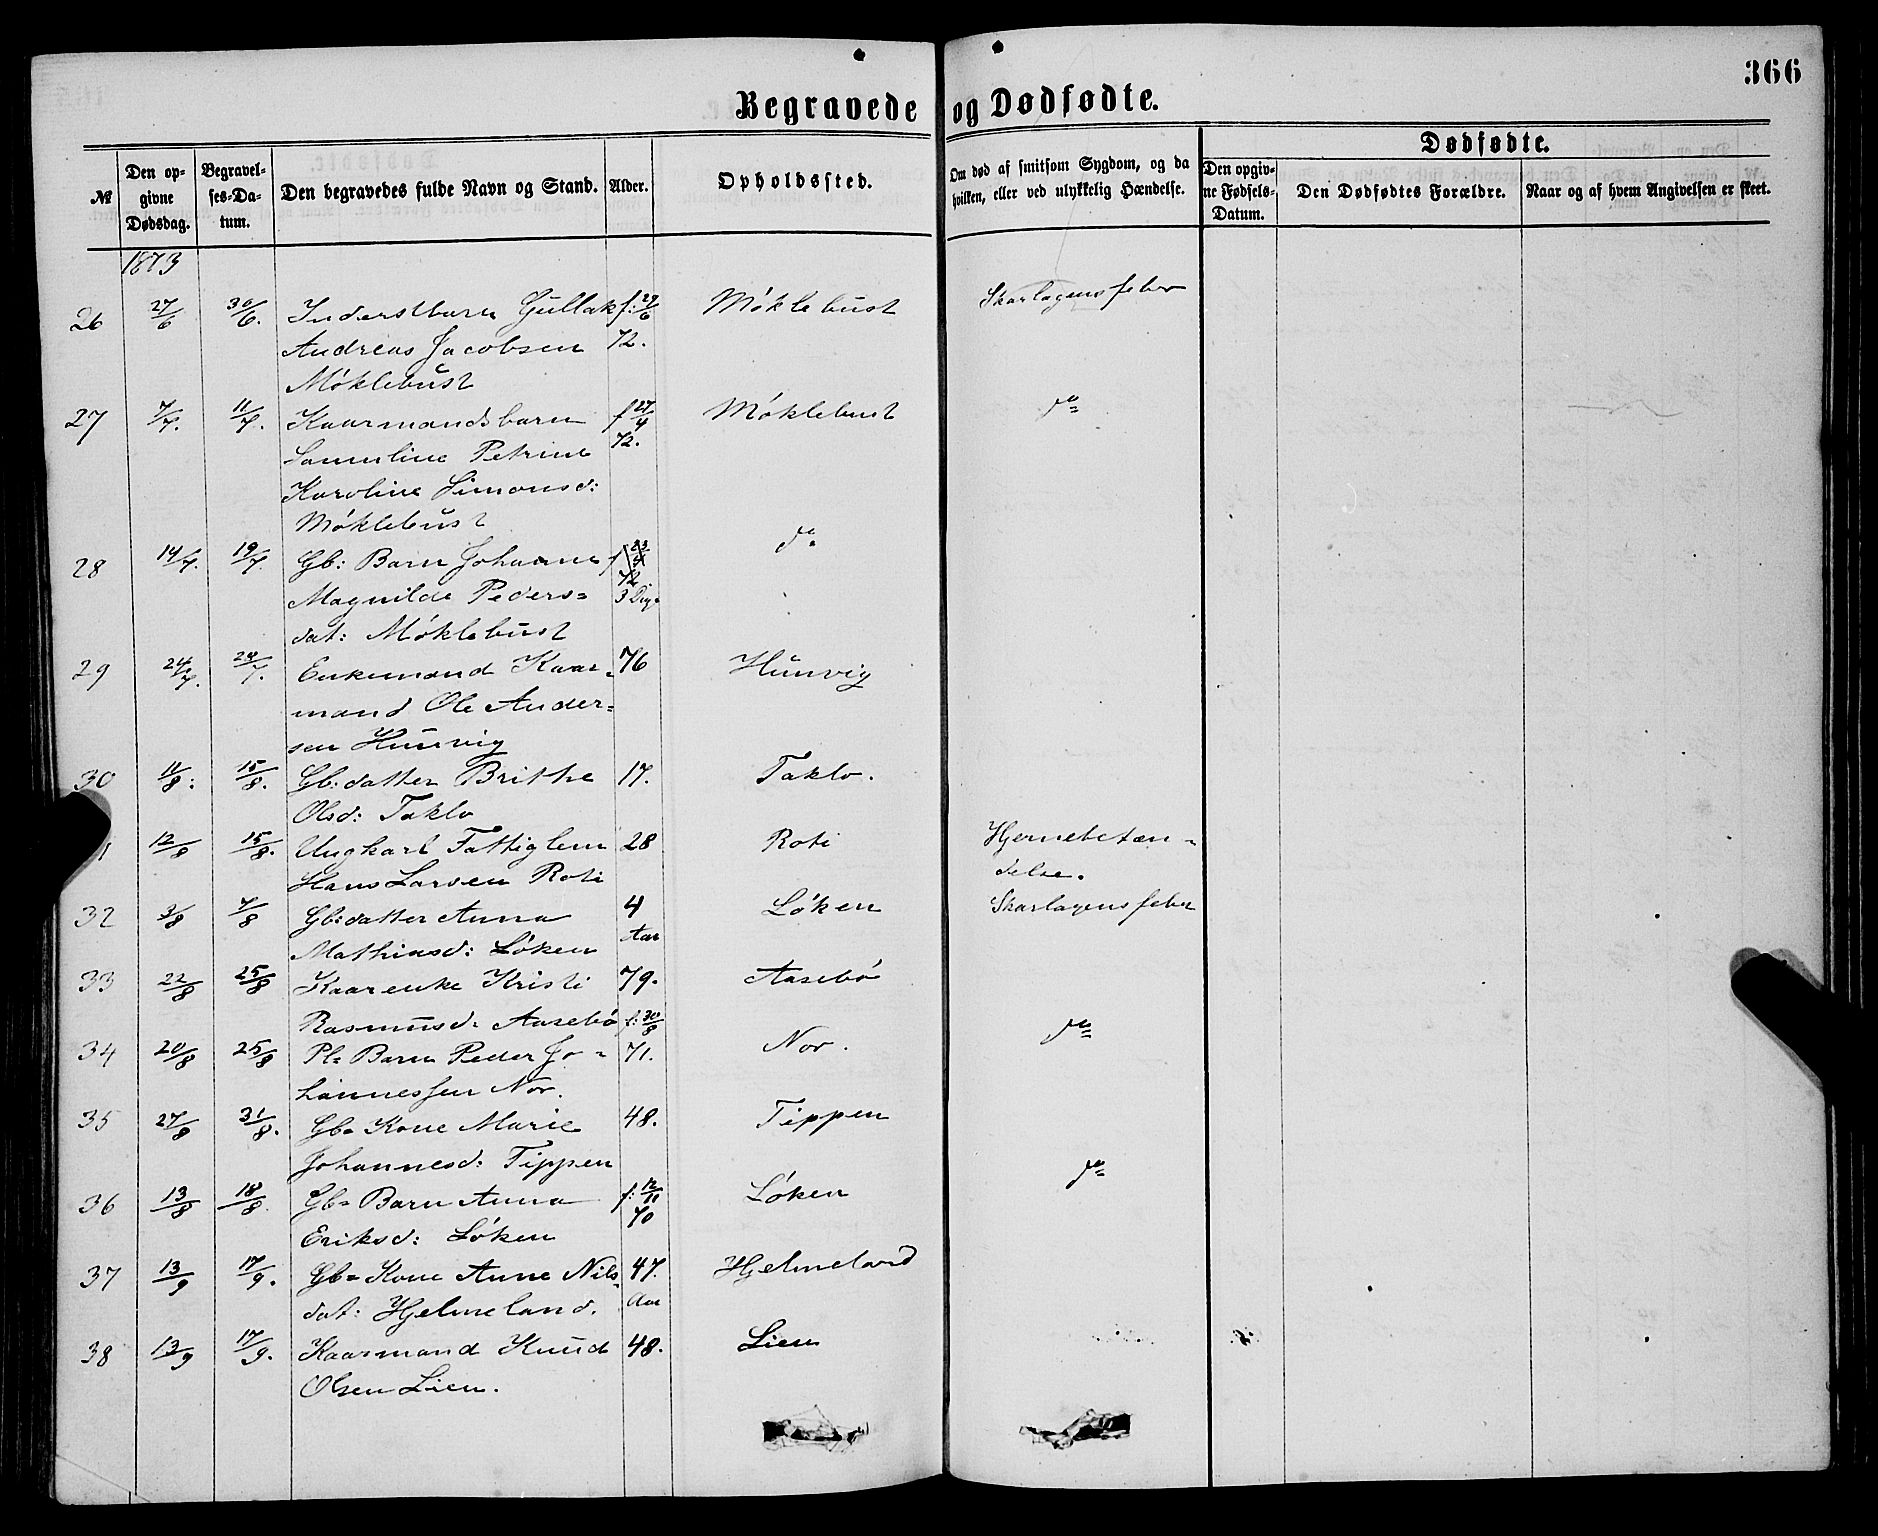 366
Begravede og Dødfødte.
№
Den opgivne Dødsdag.
Begravelses-Datum.
Den begravedes fulde Navn og Stand.
Alder.
Opholdssted.
Om død af smitsom Sygdom, og da hvilken, eller ved ulykkelig Hændelse.
Dødfødte.
Den opgivne Fødsels-Datum.
Den Dødfødtes Forældre.
Naar og af hvem Angivelsen er skeet.
1873
26 27/6 30/6. Inderstbarn Gullak f: 27/6 Møklebust Skarlagensfeber
Andreas Jacobsen 72.
Møklebust
27 7/7. 11/7. Kaarmandsbarn f 27/4 Møklebust do
Samuline Petrine 72.
Karoline Simonsd:
Møklebust
28 14/7. 19/7. Gb: Barn Johanne f do
Magnilde Peders= 3 Dage
dat: Møklebust
29 24/7. 28/7. Enkemand Kaar- 76 Hunvig
mand Ole Ander=
sen Hunvig
30 11/8: 15/8. Gb: datter Brithe 17. Taklo.
Olsd: Taklo
12/8 15/8. Ungkarl Fattiglem 28 Roti Hjernebetæn-
Hans Larsen Roti delse.
32 3/8 7/8 Gb: datter Anna 4 Løken Skarlagensfeber
Mathiasd: Løken Aar
33 22/8 25/8 Kaarenke Kristi 79. Aasebø
Rasmusd: Aasebø f: 30/8
34 20/8 25/8 Pl= Barn Peder Jo- 71. Nor. do
hannessen Nor.
35 27/8 31/8. Gb= Kone Marie 48. Tippen
Johannesd: Tippen
36 13/8 18/8. Gb= Barn Anna f: 12/11 Løken do
Eriksd: Løken 70
37 13/9 17/9. Gb= Kone Anne Nils- 47. Hjelmeland
dat: Hjelmeland. Aar
38 13/9 17/9. Kaarmand Knud 48. Lien
Olsen Lien.